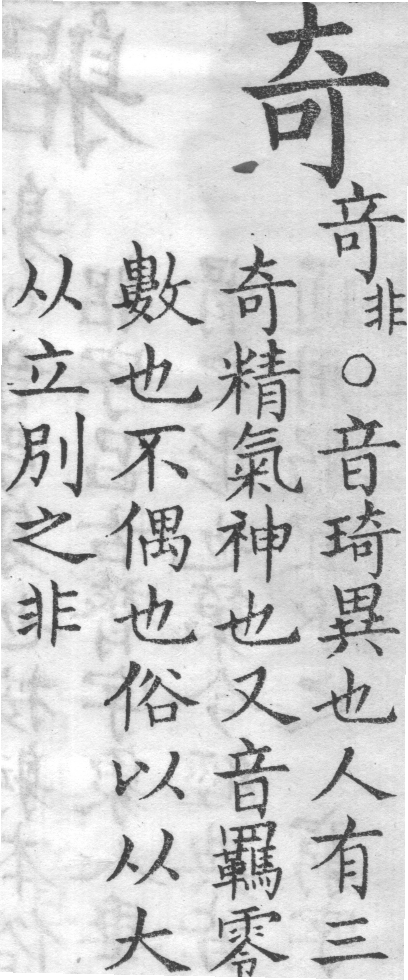 奇
竒非○音琦異也人有三
奇精氣神也又音羈零
數也不偶也俗以从大
从立別之非